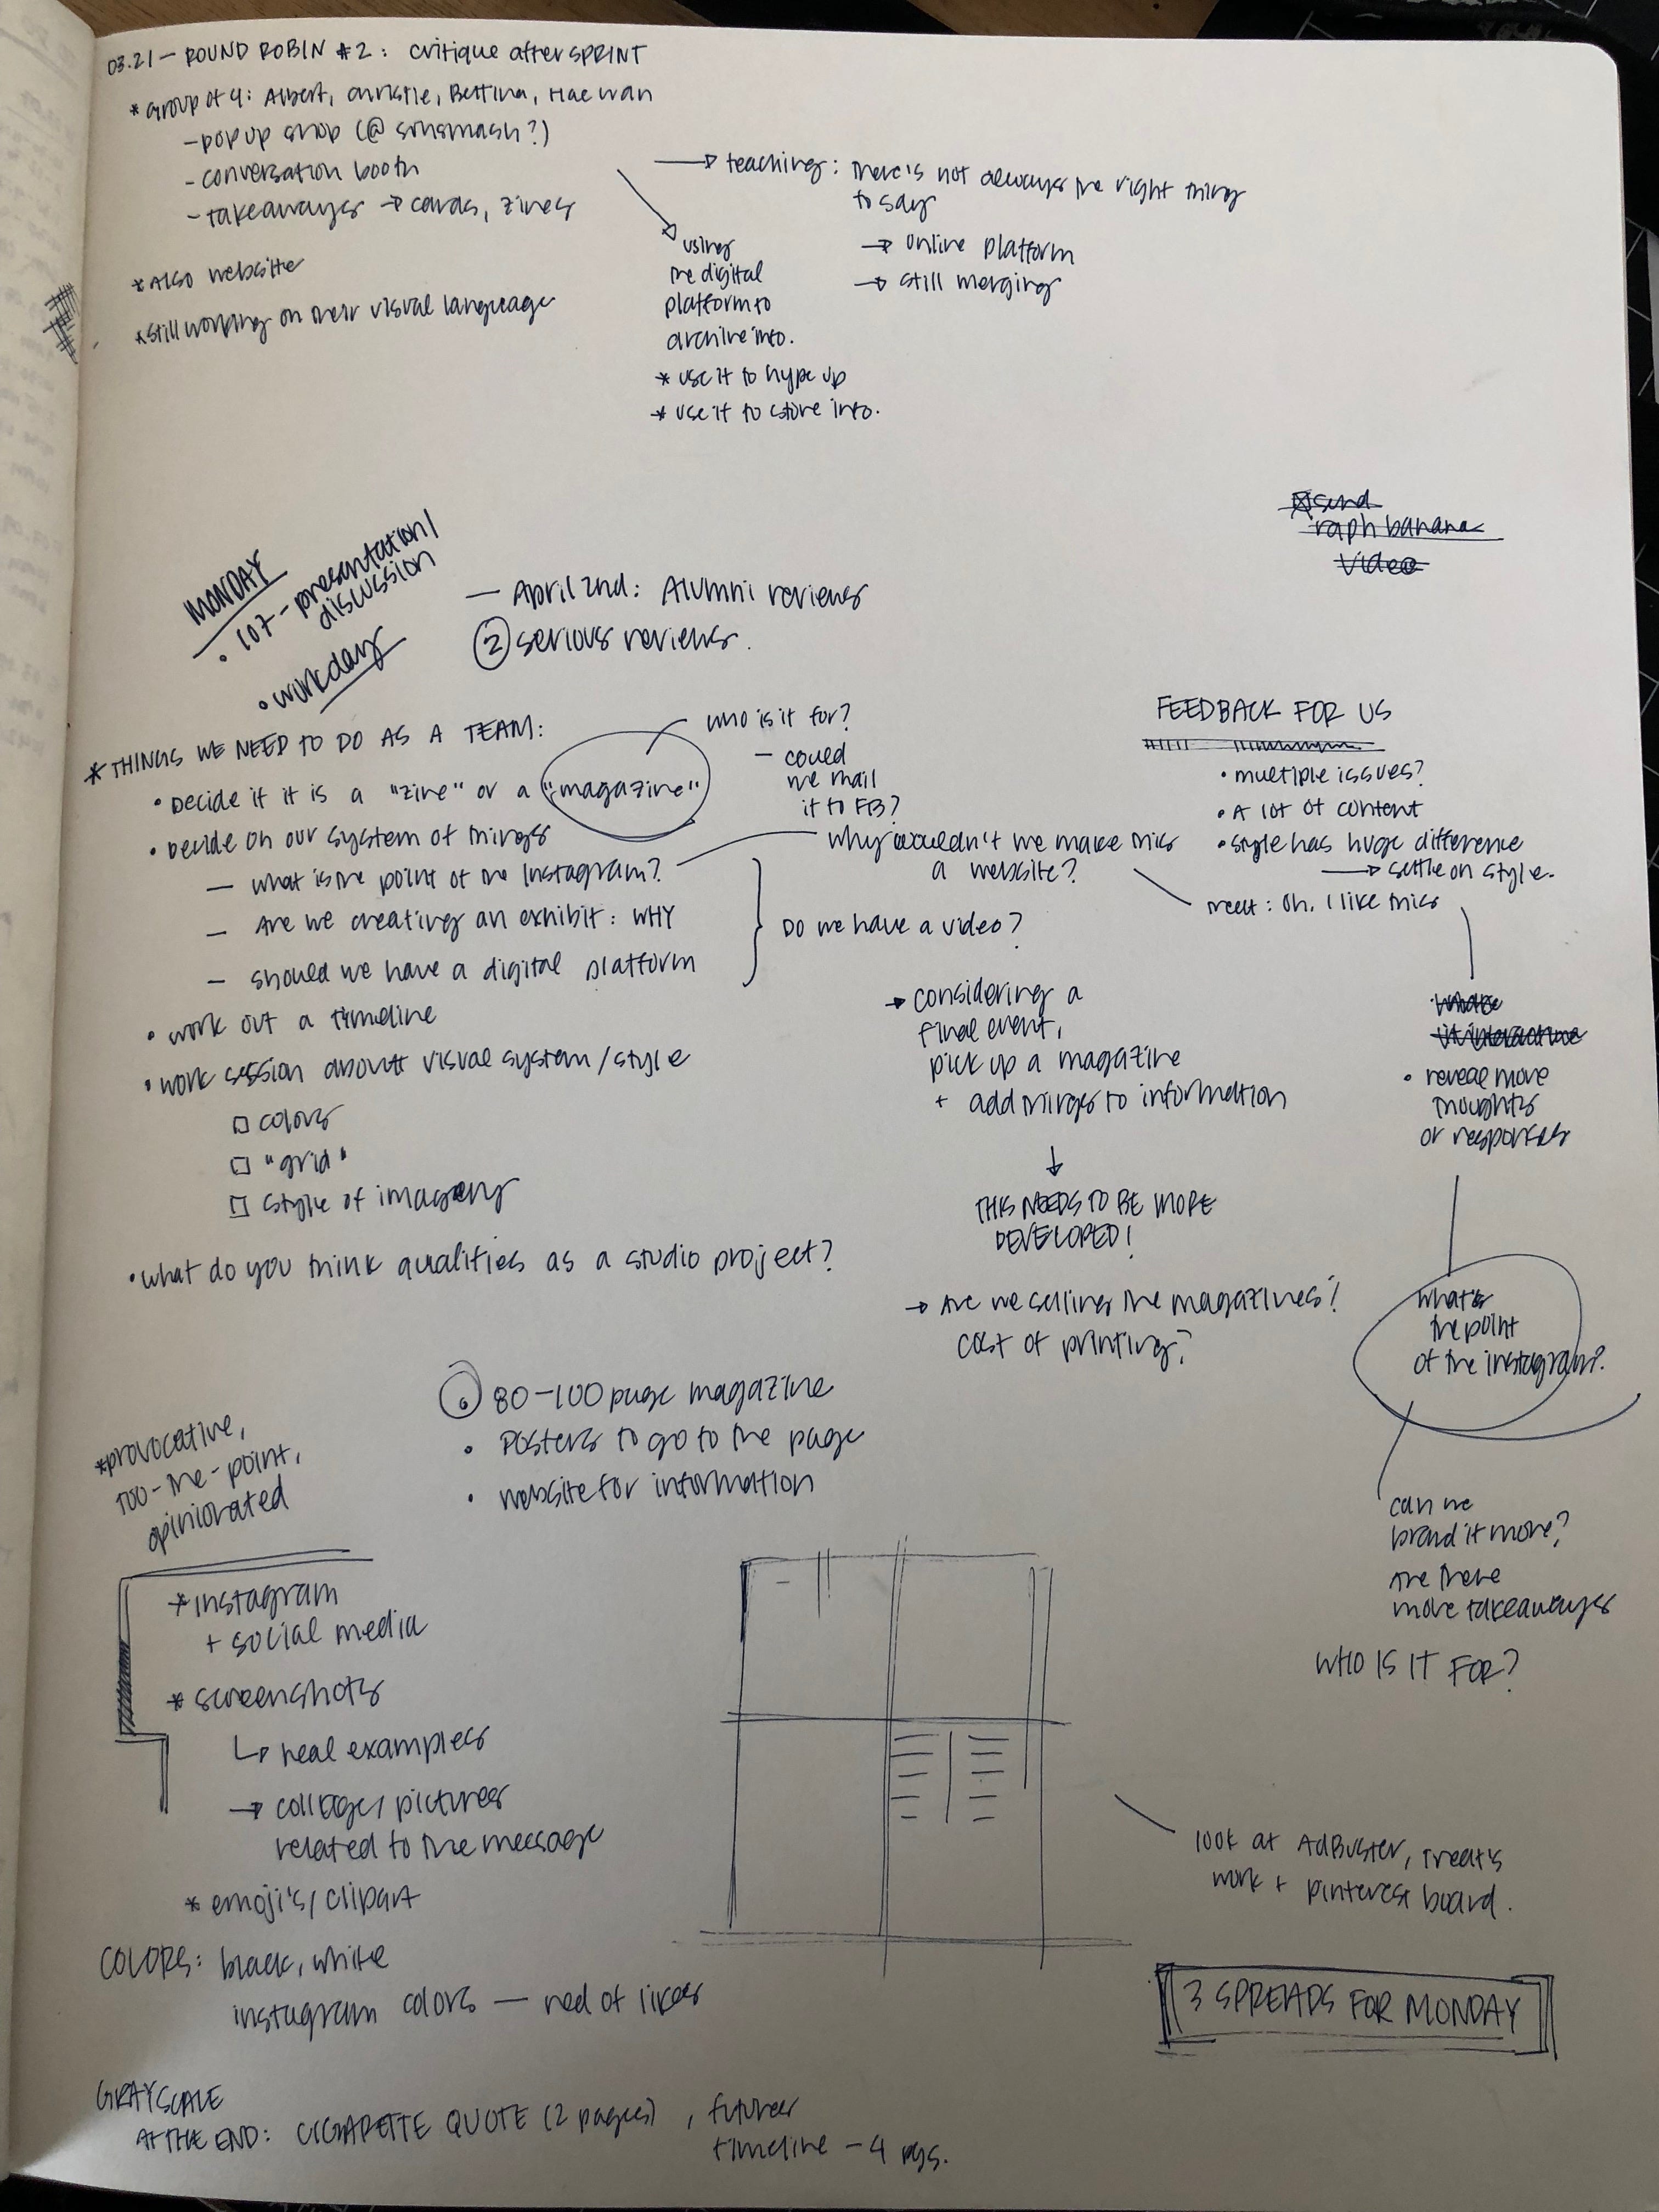 03.21 — ROUND ROBIN #2: critique after SPRINT
* Group of 4: Albert, Christie, Bettina, Hae wan
- pop up shop (@ sohsmash?)
- conversation booth
- takeaways → cards, zines
* Also website
* still working on their visual language
→ teaching: there's not always the right thing
to say
→ online platform
→ still merging
using
the digital
platform to
archive info.
* use it to hype up
* use it to store info.
send
raph banana
video
MONDAY
• 107 - presentation/
discussion
• workday
— April 2nd: Alumni reviews
② serious reviews.
* THINGS WE NEED TO DO AS A TEAM:
• Decide if it is a "zine" or a "magazine"
who is it for?
— could
we mail
it to FB?
• Decide on our system of things
— what is the point of the Instagram?
— Are we creating an exhibit: WHY
— should we have a digital platform
why wouldn't we make this
a website?
Do we have a video?
• work out a timeline
• work session about visual system/style
□ colors
□ "grid"
□ style of imagery
• what do you think qualities as a studio project?
→ considering a
final event,
pick up a magazine
+ add things to information
↓
THIS NEEDS TO BE MORE
DEVELOPED!
→ Are we selling the magazines?
cost of printing?
FEEDBACK FOR US
• multiple issues?
• A lot of content
• style has huge difference
→ settle on style.
meet: Oh, I like this
• reveal more
thoughts
or responses
what's
the point
of the instagram?
can we
brand it more?
Are there
more takeaways
WHO IS IT FOR?
80-100 page magazine
• Posters to go to the page
• website for information
* provocative,
too-the-point,
opinionated
* instagram
+ social media
* screenshots
↳ real examples
→ collage/pictures
related to the message
* emoji's/clipart
COLORS: black, white
instagram colors — red of likes
look at AdBuster, Treat's
work + pinterest board.
3 SPREADS FOR MONDAY
GRAYSCALE
AT THE END: CIGARETTE QUOTE (2 pages), futures
timeline - 4 pgs.